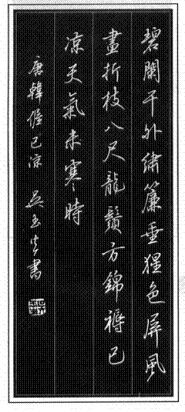 碧阑干外绣簾垂猩色屏風
畫折枝八尺龍鬚方錦褥已
凉天氣未寒時
唐韓偓已凉 吴玉生書